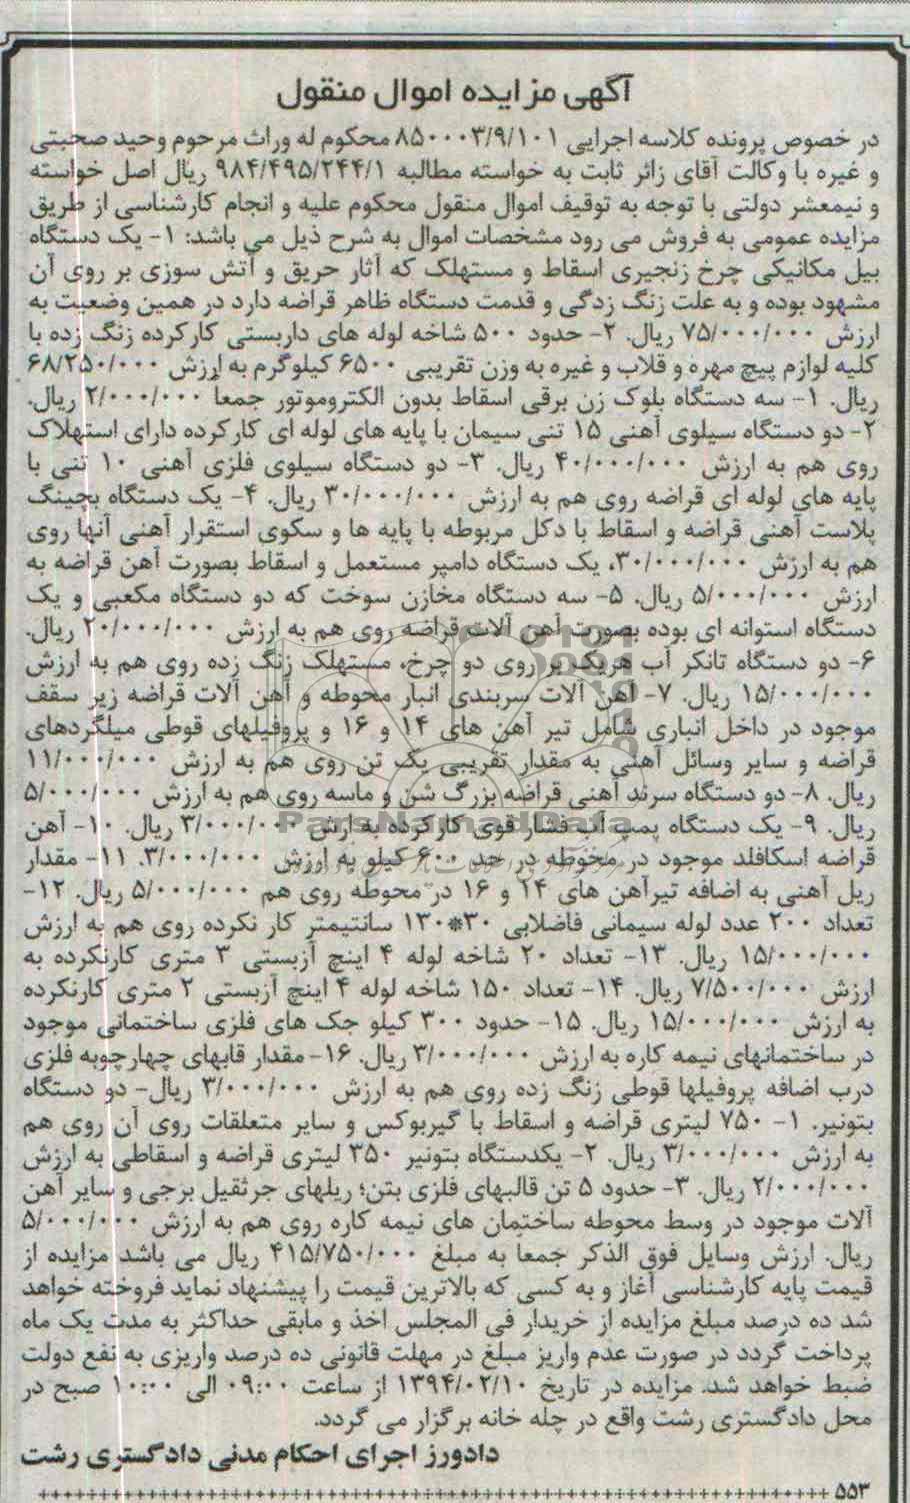 آگهی مزایده اموال منقول
در خصوص پرونده کلاسه اجرایی ۸۵۰۰۰۳/۹/۱۰۱ محکوم له وراث مرحوم وحید صحبتی
و غیره با وکالت آقای زائر ثابت به خواسته مطالبه ۹۸۴/۴۹۵/۲۴۴/۱ ریال اصل خواسته
و نیمعشر دولتی با توجه به توقیف اموال منقول محکوم علیه و انجام کارشناسی از طریق
مزایده عمومی به فروش می رود مشخصات اموال به شرح ذیل می باشد: ۱- یک دستگاه
بیل مکانیکی چرخ زنجیری اسقاط و مستهلک که آثار حریق و آتش سوزی بر روی آن
مشهود بوده و به علت زنگ زدگی و قدمت دستگاه ظاهر قراضه دارد در همین وضعیت به
ارزش ۷۵/۰۰۰/۰۰۰ ریال. ۲- حدود ۵۰۰ شاخه لوله های داربستی کارکرده زنگ زده با
کلیه لوازم پیچ مهره و قلاب و غیره به وزن تقریبی ۶۵۰۰ کیلوگرم به ارزش ۶۸/۲۵۰/۰۰۰
ریال. ۱- سه دستگاه بلوک زن برقی اسقاط بدون الکتروموتور جمعا ۲/۰۰۰/۰۰۰ ریال.
۲- دو دستگاه سیلوی آهنی ۱۵ تنی سیمان با پایه های لوله ای کارکرده دارای استهلاک
روی هم به ارزش ۴۰/۰۰۰/۰۰۰ ریال. ۳- دو دستگاه سیلوی فلزی آهنی ۱۰ تنی با
پایه های لوله ای قراضه روی هم به ارزش ۳۰/۰۰۰/۰۰۰ ریال. ۴- یک دستگاه بچینگ
پلاست آهنی قراضه و اسقاط با دکل مربوطه با پایه ها و سکوی استقرار آهنی آنها روی
هم به ارزش ۳۰/۰۰۰/۰۰۰، یک دستگاه دامپر مستعمل و اسقاط بصورت آهن قراضه به
ارزش ۵/۰۰۰/۰۰۰ ریال. ۵- سه دستگاه مخازن سوخت که دو دستگاه مکعبی و یک
دستگاه استوانه ای بوده بصورت آهن آلات قراضه روی هم به ارزش ۲۰/۰۰۰/۰۰۰ ریال.
۶- دو دستگاه تانکر آب هریک بر روی دو چرخ، مستهلک زنگ زده روی هم به ارزش
۱۵/۰۰۰/۰۰۰ ریال. ۷- آهن آلات سربندی انبار محوطه و آهن آلات قراضه زیر سقف
موجود در داخل انباری شامل تیر آهن های ۱۴ و ۱۶ و پروفیلهای قوطی میلگردهای
قراضه و سایر وسائل آهنی به مقدار تقریبی یک تن روی هم به ارزش ۱۱/۰۰۰/۰۰۰
ریال. ۸- دو دستگاه سرند آهنی قراضه بزرگ شن و ماسه روی هم به ارزش ۵/۰۰۰/۰۰۰
ریال. ۹- یک دستگاه پمپ آب فشار قوی کارکرده به ارزش ۳/۰۰۰/۰۰۰ ریال. ۱۰- آهن
قراضه اسکافلد موجود در محوطه در حد ۶۰۰ کیلو به ارزش ۳/۰۰۰/۰۰۰. ۱۱- مقدار
ریل آهنی به اضافه تیرآهن های ۱۴ و ۱۶ در محوطه روی هم ۵/۰۰۰/۰۰۰ ریال. ۱۲-
تعداد ۲۰۰ عدد لوله سیمانی فاضلابی ۳۰*۱۳۰ سانتیمتر کار نکرده روی هم به ارزش
۱۵/۰۰۰/۰۰۰ ریال. ۱۳- تعداد ۲۰ شاخه لوله ۴ اینچ آزبستی ۳ متری کارنکرده به
ارزش ۷/۵۰۰/۰۰۰ ریال. ۱۴- تعداد ۱۵۰ شاخه لوله ۴ اینچ آزبستی ۲ متری کارنکرده
به ارزش ۱۵/۰۰۰/۰۰۰ ریال. ۱۵- حدود ۳۰۰ کیلو جک های فلزی ساختمانی موجود
در ساختمانهای نیمه کاره به ارزش ۳/۰۰۰/۰۰۰ ریال. ۱۶- مقدار قابهای چهارچوبه فلزی
درب اضافه پروفیلها قوطی زنگ زده روی هم به ارزش ۳/۰۰۰/۰۰۰ ریال- دو دستگاه
بتونیر. ۱- ۷۵۰ لیتری قراضه و اسقاط با گیربوکس و سایر متعلقات روی آن روی هم
به ارزش ۳/۰۰۰/۰۰۰ ریال. ۲- یکدستگاه بتونیر ۳۵۰ لیتری قراضه و اسقاطی به ارزش
۲/۰۰۰/۰۰۰ ریال. ۳- حدود ۵ تن قالبهای فلزی بتن؛ ریلهای جرثقیل برجی و سایر آهن
آلات موجود در وسط محوطه ساختمان های نیمه کاره روی هم به ارزش ۵/۰۰۰/۰۰۰
ریال. ارزش وسایل فوق الذکر جمعا به مبلغ ۴۱۵/۷۵۰/۰۰۰ ریال می باشد مزایده از
قیمت پایه کارشناسی آغاز و به کسی که بالاترین قیمت را پیشنهاد نماید فروخته خواهد
شد ده درصد مبلغ مزایده از خریدار فی المجلس اخذ و مابقی حداکثر به مدت یک ماه
پرداخت گردد در صورت عدم واریز مبلغ در مهلت قانونی ده درصد واریزی به نفع دولت
ضبط خواهد شد. مزایده در تاریخ ۱۳۹۴/۰۲/۱۰ از ساعت ۰۹:۰۰ الی ۱۰:۰۰ صبح در
محل دادگستری رشت واقع در چله خانه برگزار می گردد.
دادورز اجرای احکام مدنی دادگستری رشت
۵۵۳
ParsNamadData